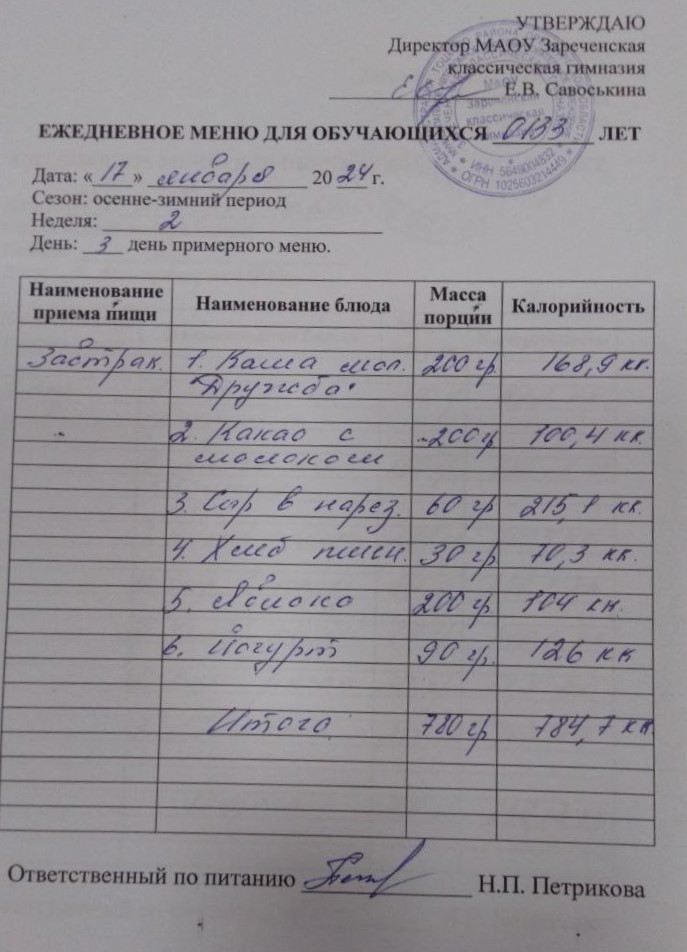 УТВЕРЖДАЮ
Директор МАОУ Зареченская
классическая гимназия
Е.В. Савоськина
МАОУ
Зареченская
классическая
ИНН 5649004832 * ОГРН 1025603214449
ЕЖЕДНЕВНОЕ МЕНЮ ДЛЯ ОБУЧАЮЩИХСЯ ОВЗ ЛЕТ
Дата: «17» января 2024 г.
Сезон: осенне-зимний период
Неделя: 2
День: 3 день примерного меню.
Наименование приема пищи Наименование блюда Масса порции Калорийность
Завтрак. 1. Каша мол. 200 гр 168,9 кк.
"Дружба"
2. Какао с 200 гр 100,4 кк
молоком
3. Сыр в нарез. 60 гр 215,1 кк.
4. Хлеб пшен. 30 гр 70,3 кк.
5. Яблоко 200 гр 104 кк.
6. Йогурт 90 гр. 126 кк
Итого 780 гр 784,7 кк
Ответственный по питанию Н.П. Петрикова